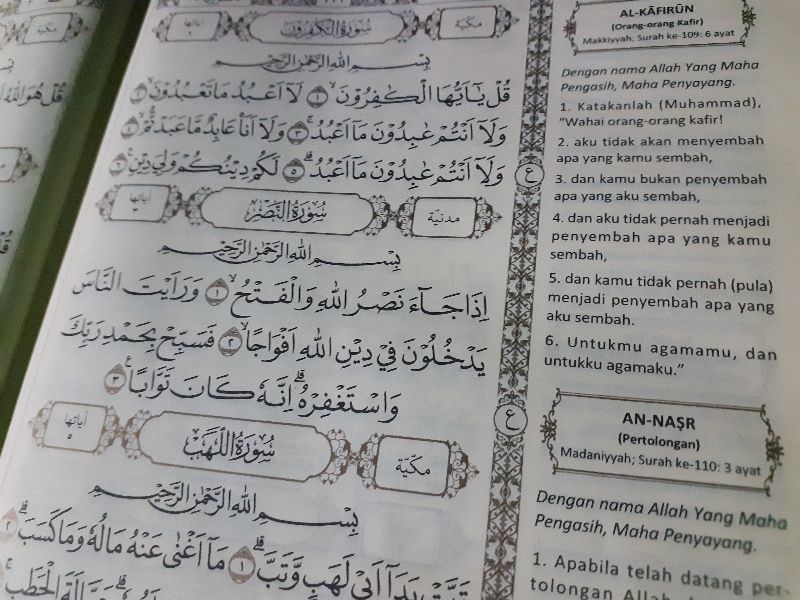 مكيّة
سُورَةُ الْكٰفِرُوْنَ
أياتها
٦
بِسْمِ اللهِ الرَّحْمٰنِ الرَّحِيْمِ
قُلْ يٰٓاَيُّهَا الْكٰفِرُوْنَۙ ١ لَآ اَعْبُدُ مَا تَعْبُدُوْنَۙ ٢
وَلَآ اَنْتُمْ عٰبِدُوْنَ مَآ اَعْبُدُۚ ٣ وَلَآ اَنَا۠ عَابِدٌ مَّا عَبَدْتُّمْۙ ٤
وَلَآ اَنْتُمْ عٰبِدُوْنَ مَآ اَعْبُدُۗ ٥ لَكُمْ دِيْنُكُمْ وَلِيَ دِيْنِ ٦
مدنيّة
سُورَةُ النَّصْرِ
أياتها
٣
بِسْمِ اللهِ الرَّحْمٰنِ الرَّحِيْمِ
اِذَا جَاۤءَ نَصْرُ اللهِ وَالْفَتْحُۙ ١ وَرَاَيْتَ النَّاسَ
يَدْخُلُوْنَ فِيْ دِيْنِ اللهِ اَفْوَاجًاۙ ٢ فَسَبِّحْ بِحَمْدِ رَبِّكَ
وَاسْتَغْفِرْهُۗ اِنَّهٗ كَانَ تَوَّابًا ٣
مكيّة
سُورَةُ اللَّهَبِ
أياتها
٥
بِسْمِ اللهِ الرَّحْمٰنِ الرَّحِيْمِ
تَبَّتْ يَدَآ اَبِيْ لَهَبٍ وَّتَبَّۗ ١ مَآ اَغْنٰى عَنْهُ مَالُهٗ وَمَا كَسَبَۗ ٢
حَمَّالَةَ الْحَطَبِ
AL-KĀFIRŪN
(Orang-orang Kafir)
Makkiyyah; Surah ke-109: 6 ayat
Dengan nama Allah Yang Maha
Pengasih, Maha Penyayang.
1. Katakanlah (Muhammad),
“Wahai orang-orang kafir!
2. aku tidak akan menyembah
apa yang kamu sembah,
3. dan kamu bukan penyembah
apa yang aku sembah,
4. dan aku tidak pernah menjadi
penyembah apa yang kamu
sembah,
5. dan kamu tidak pernah (pula)
menjadi penyembah apa yang
aku sembah.
6. Untukmu agamamu, dan
untukku agamaku.”
AN-NAṢR
(Pertolongan)
Madaniyyah; Surah ke-110: 3 ayat
Dengan nama Allah Yang Maha
Pengasih, Maha Penyayang.
1. Apabila telah datang per-
tolongan Allah